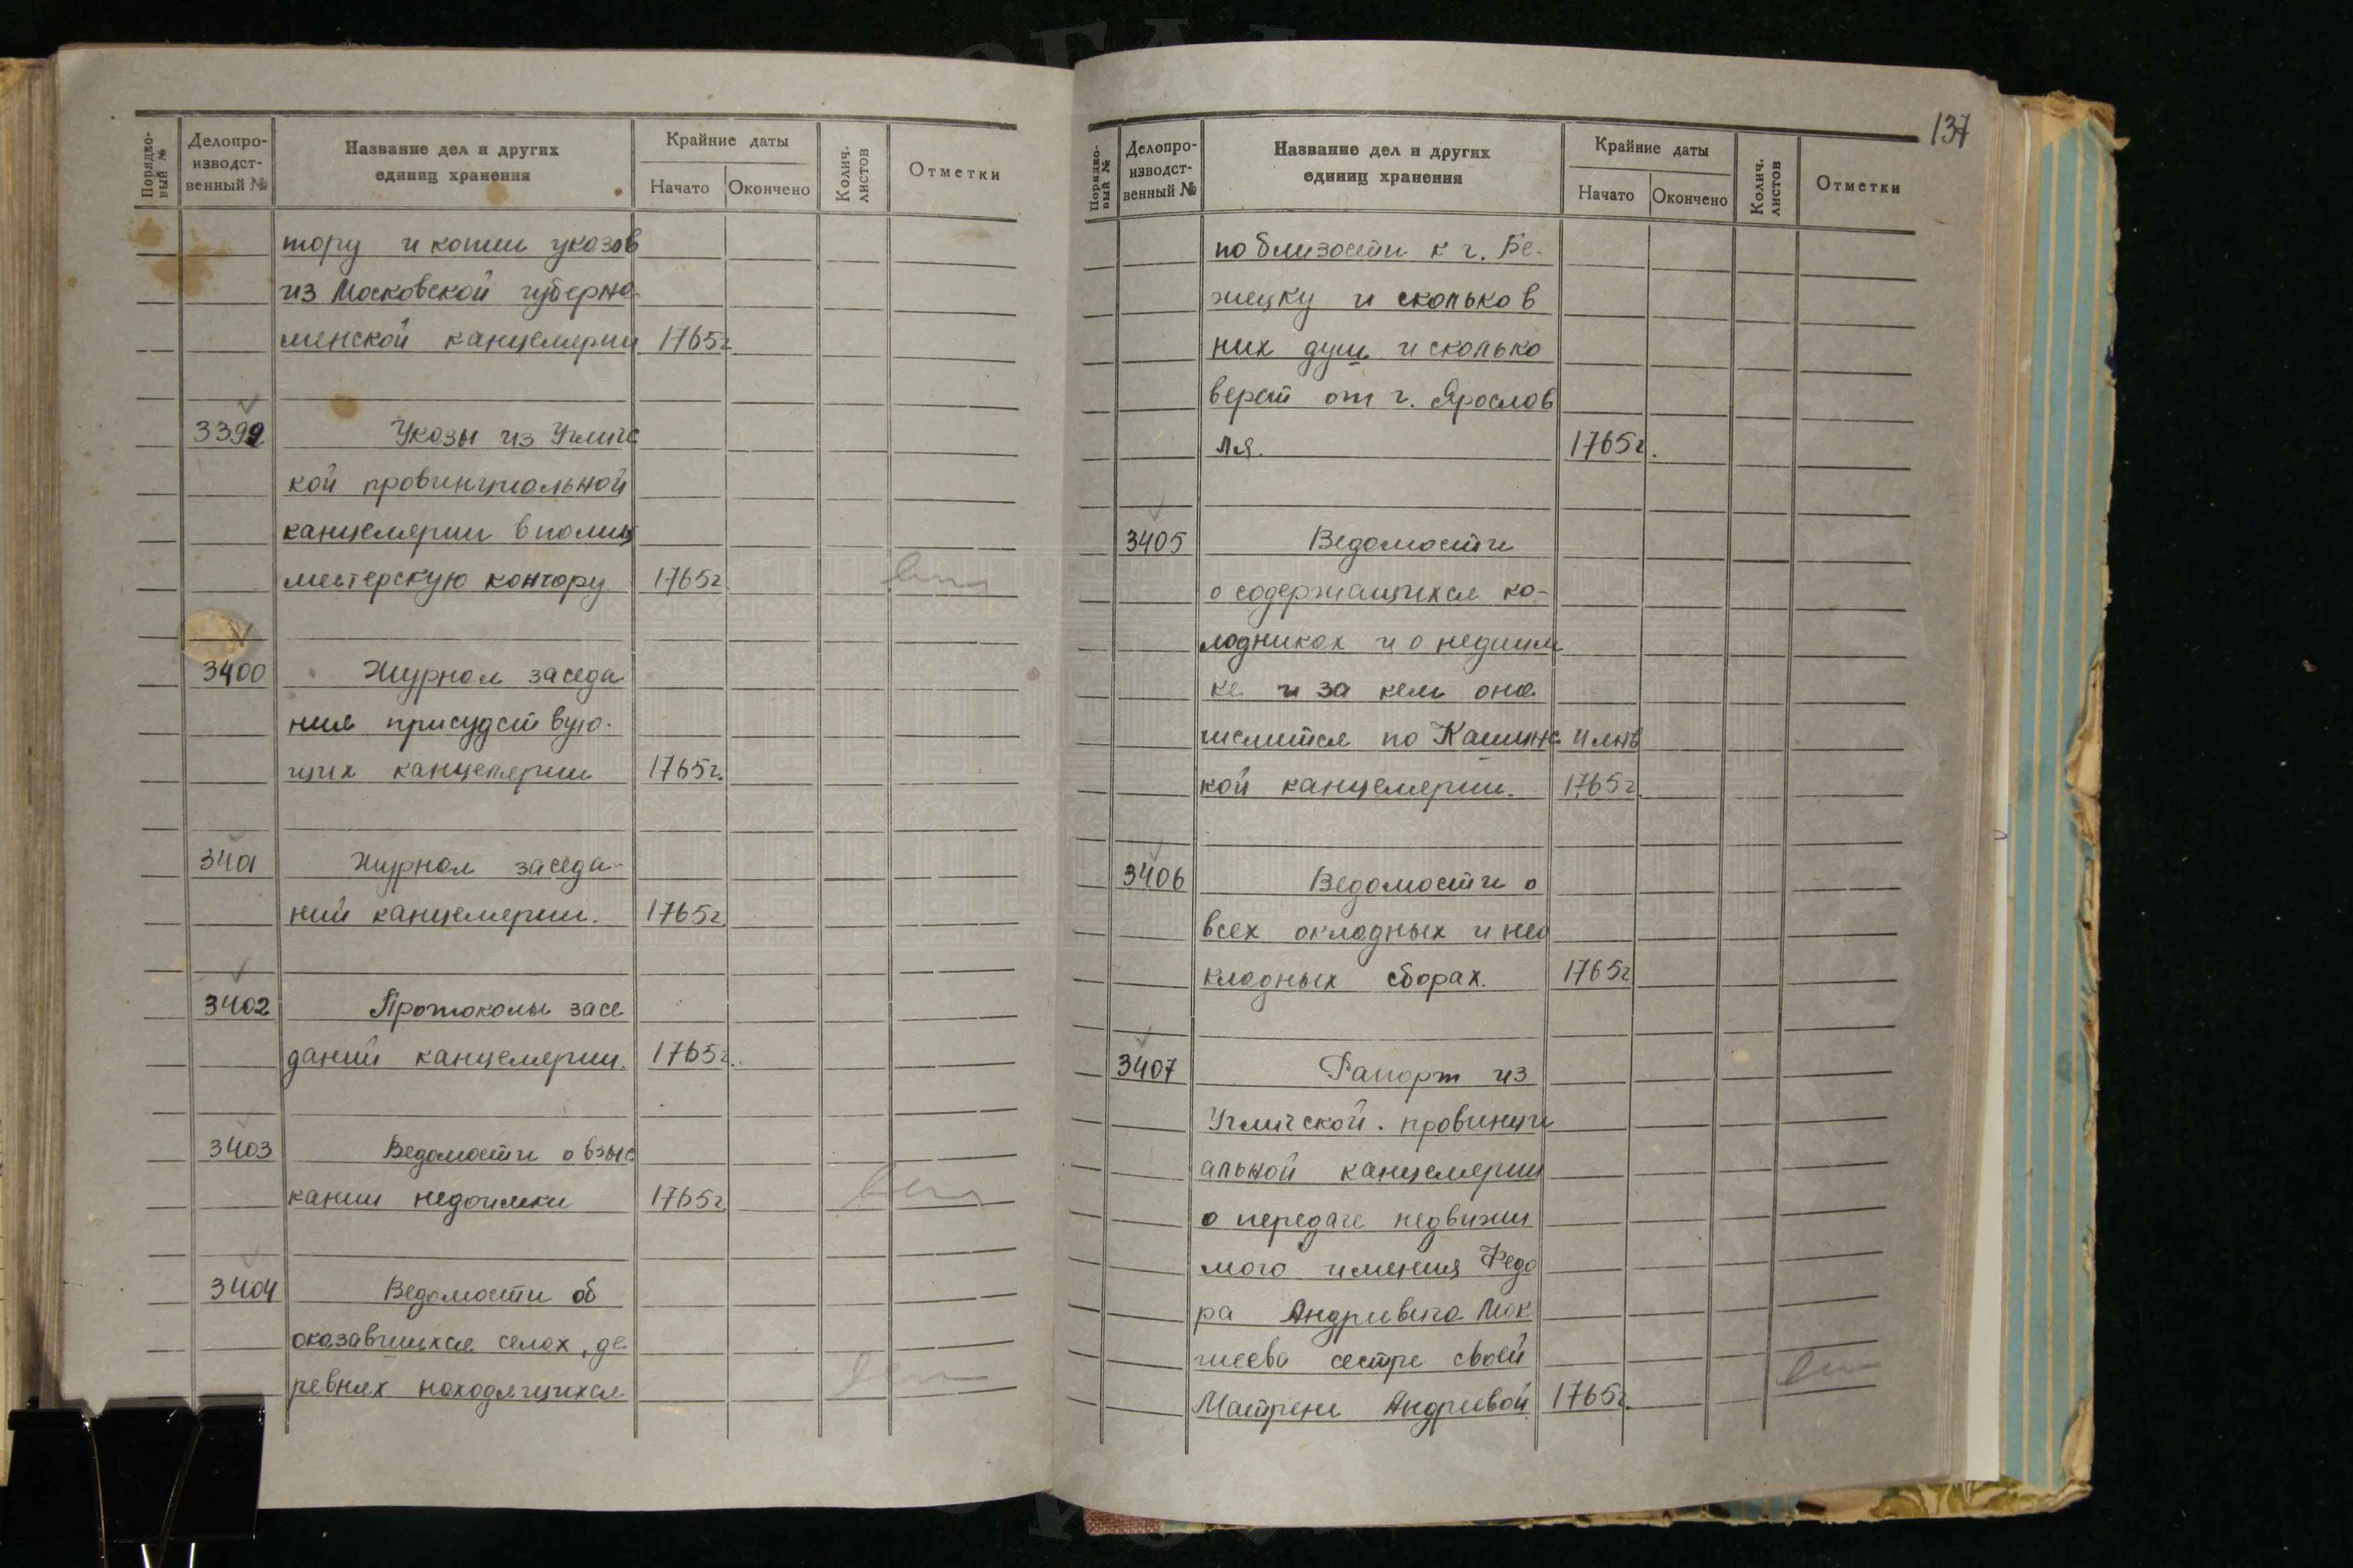 Порядко-
вый №
Делопро-
изводст-
венный №
Название дел и других
единиц хранения
Крайние даты
Начато
Окончено
Колич.
листов
Отметки
тору и копии указов
из Московской губерна
менской канцелярии 1765г
3399 Указы из Углиге
кой провинциальной
канцелярии в полиц
местерскую контору 1765г.
3400 Журнал заседа
ния присудствую-
щих канцелярии 1765г.
3401 Журнал заседа-
ний канцелярии. 1765г
3402 Протоколы засе
даний канцелярии. 1765г.
3403 Ведомости о взыс
кании недоимки 1765г
3404 Ведомости об
оказавшихся селах, де
ревнях находящихся
137
Порядко-
вый №
Делопро-
изводст-
венный №
Название дел и других
единиц хранения
Крайние даты
Начато
Окончено
Колич.
листов
Отметки
по близости к г. Бе-
жецку и сколько в
них душ и сколько
верст от г. Ярослав
ля. 1765г.
3405 Ведомости
о содержащихся ко-
лодниках и о недоим
ке и за кем она
числится по Кашинс
кой канцелярии. 1765г.
3406 Ведомости о
всех окладных и нео
кладных сборах. 1765г
3407 Рапорт из
Угличской провинци
альной канцелярии
о передаче недвижи
мого имения Федо
ра Андриевича Мок
шеева сестре своей
Матрене Андреевой 1765г.